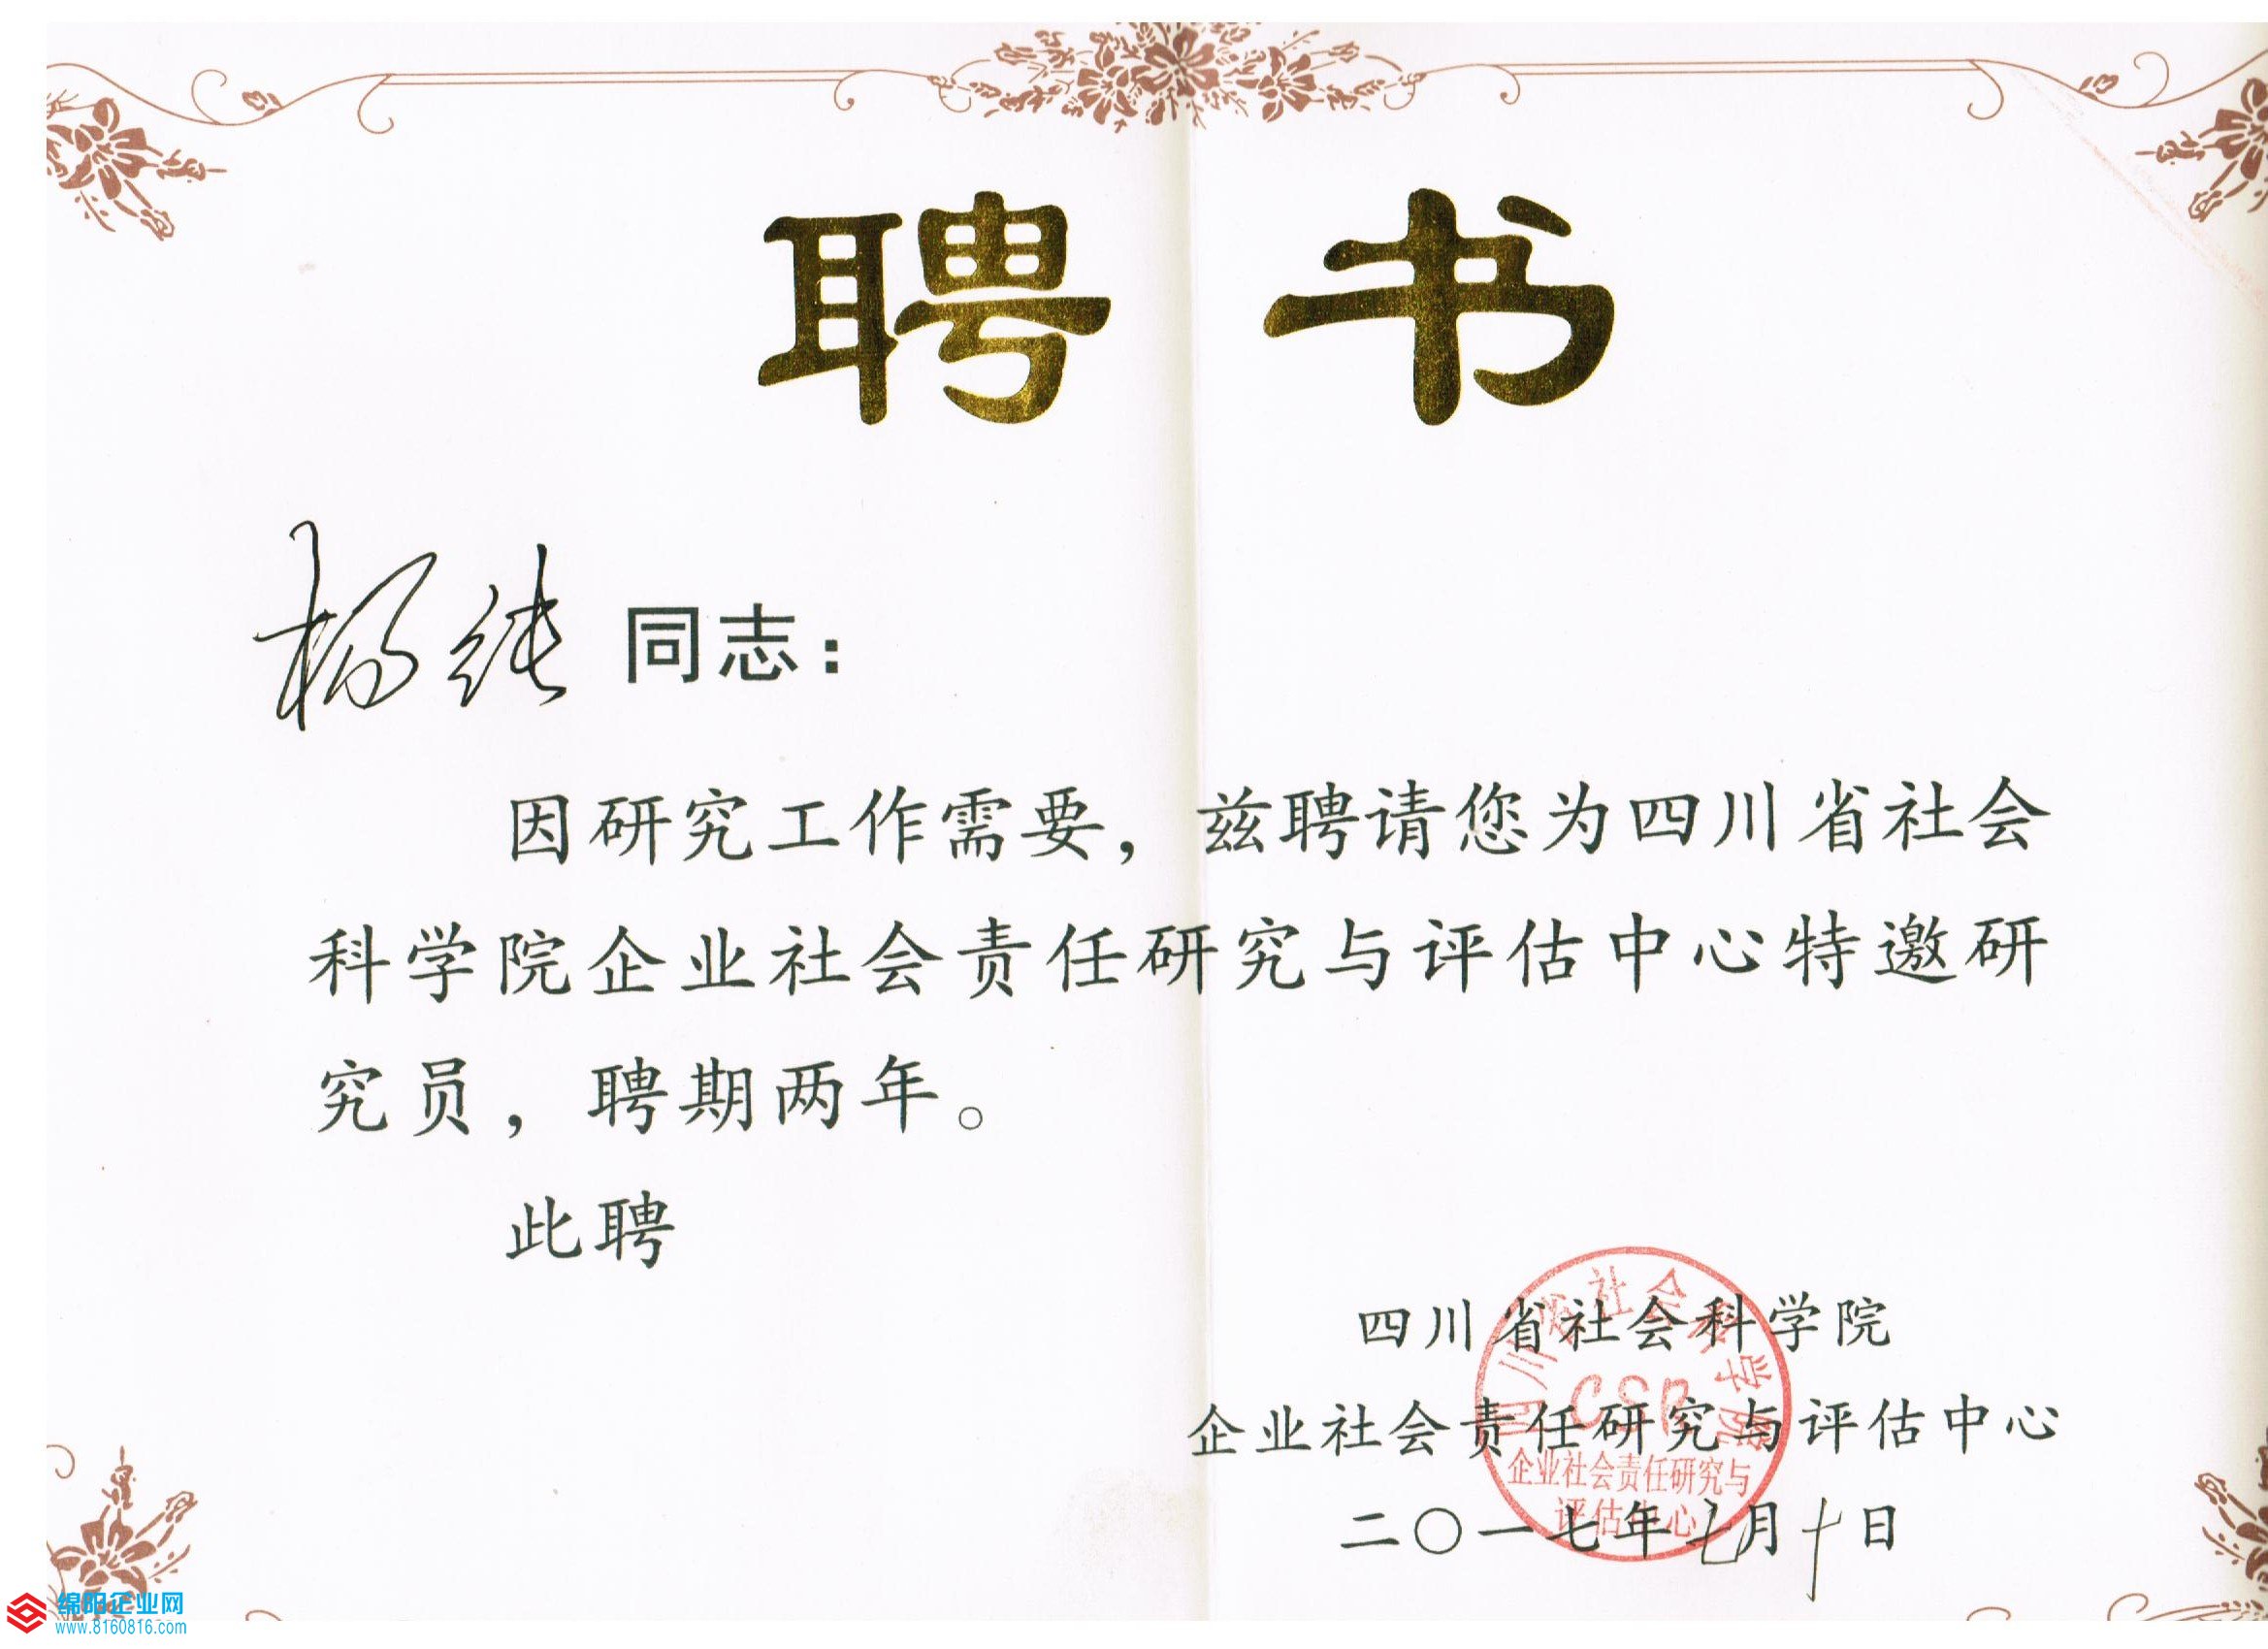 聘书
杨纯同志：
因研究工作需要，兹聘请您为四川省社会
科学院企业社会责任研究与评估中心特邀研
究员，聘期两年。
此聘
四川省社会科学院
企业社会责任研究与评估中心
二〇一七年七月十日
四川省社会科学院
CSR
企业社会责任研究与
评估中心
绵阳企业网
www.8160816.com